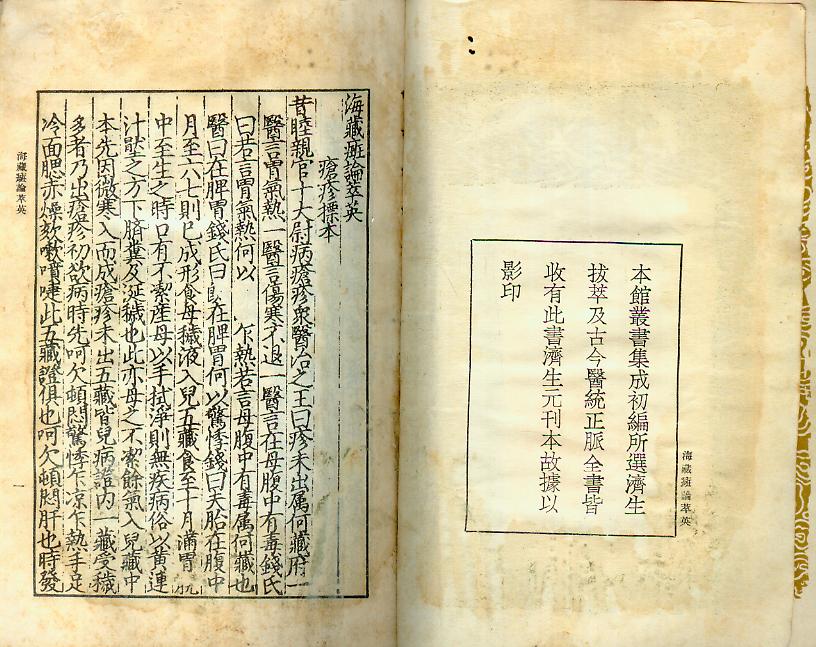 本館叢書集成初編所選濟生
拔萃及古今醫統正脈全書皆
收有此書濟生元刊本故據以
影印
海藏癍論萃英
海藏癍論萃英
瘡疹標本
昔睦親宫十大尉病瘡疹衆醫治之王曰疹未出属何藏府一
醫言胃氣熱一醫言傷寒不退一醫言在母腹中有毒錢氏
曰若言胃氣熱何以乍熱若言母腹中有毒属何藏也
醫曰在脾胃錢氏曰在脾胃何以驚悸錢曰夫胎在腹中
月至六七則已成形食母穢液入兒五藏食至十月滿胃
中至生之時口有不絜産母以手拭淨則無疾病俗以黄連
汁壓之方下臍糞及涎穢也此亦母之不絜餘氣入兒藏中
本先因微寒入而成瘡疹未出五藏皆見病證内一藏受穢
多者乃出瘡疹初欲病時先呵欠頓悶驚悸乍凉乍熱手足
冷面腮赤燥欬嗽噴嚏此五藏證俱也呵欠頓悶肝也時發
海藏癍論萃英
一